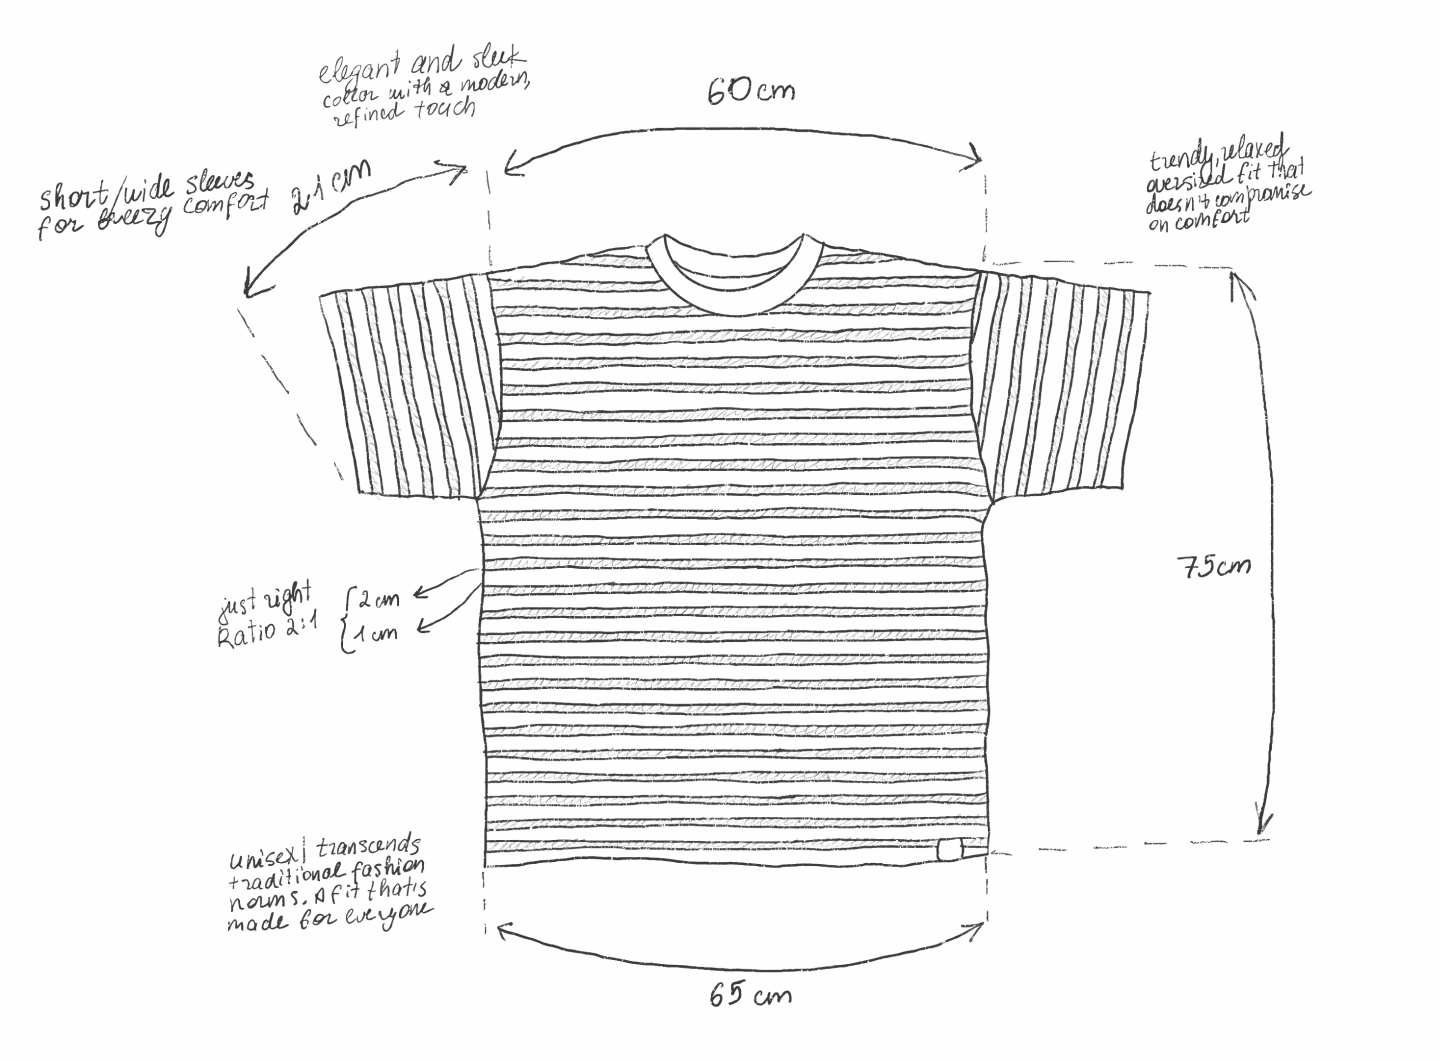 elegant and sleek
collar with a modern,
refined touch
60cm
short/wide sleeves
for breezy comfort
21cm
trendy, relaxed
oversized fit that
doesn't compromise
on comfort
75cm
just right
Ratio 2:1
2cm
1cm
unisex| transcends
traditional fashion
norms. A fit that's
made for everyone
65cm